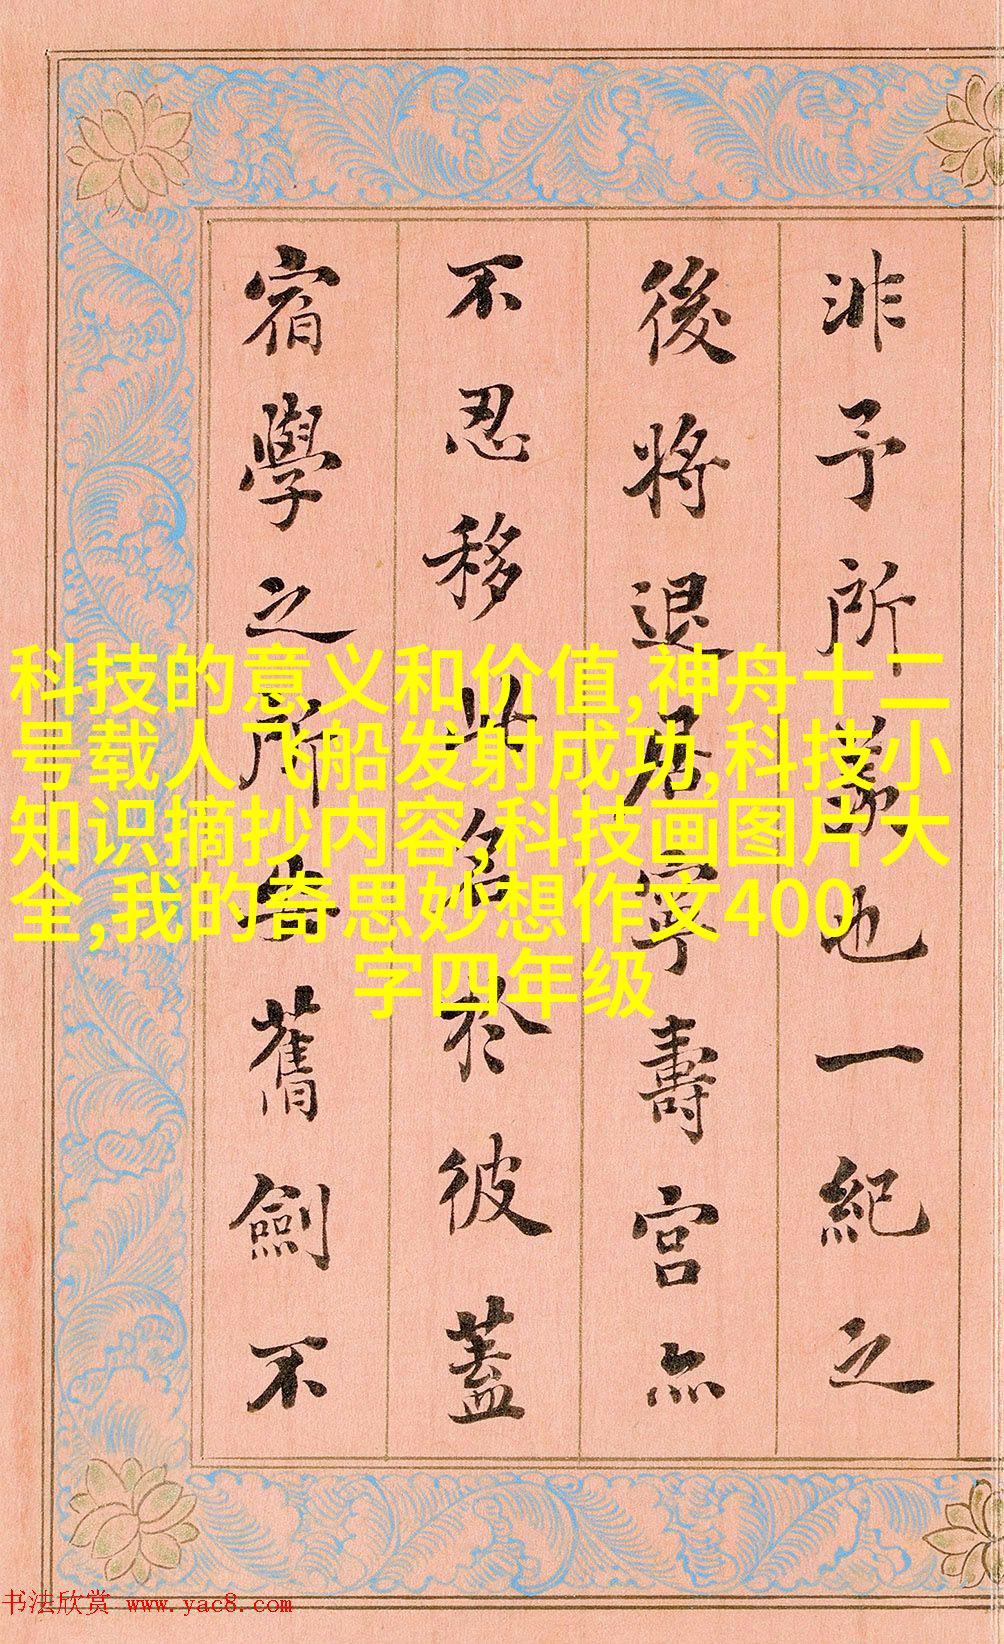 非予所也一紀之
後將退居寧壽宮亦
不忍移此名於彼蓋
宿學之所安舊劍不
科技的意义和价值,神舟十二
号载人飞船发射成功,科技小
知识摘抄内容,科技画图片大
全,我的奇思妙想作文400
字四年级
书法欣赏 www.yac8.com